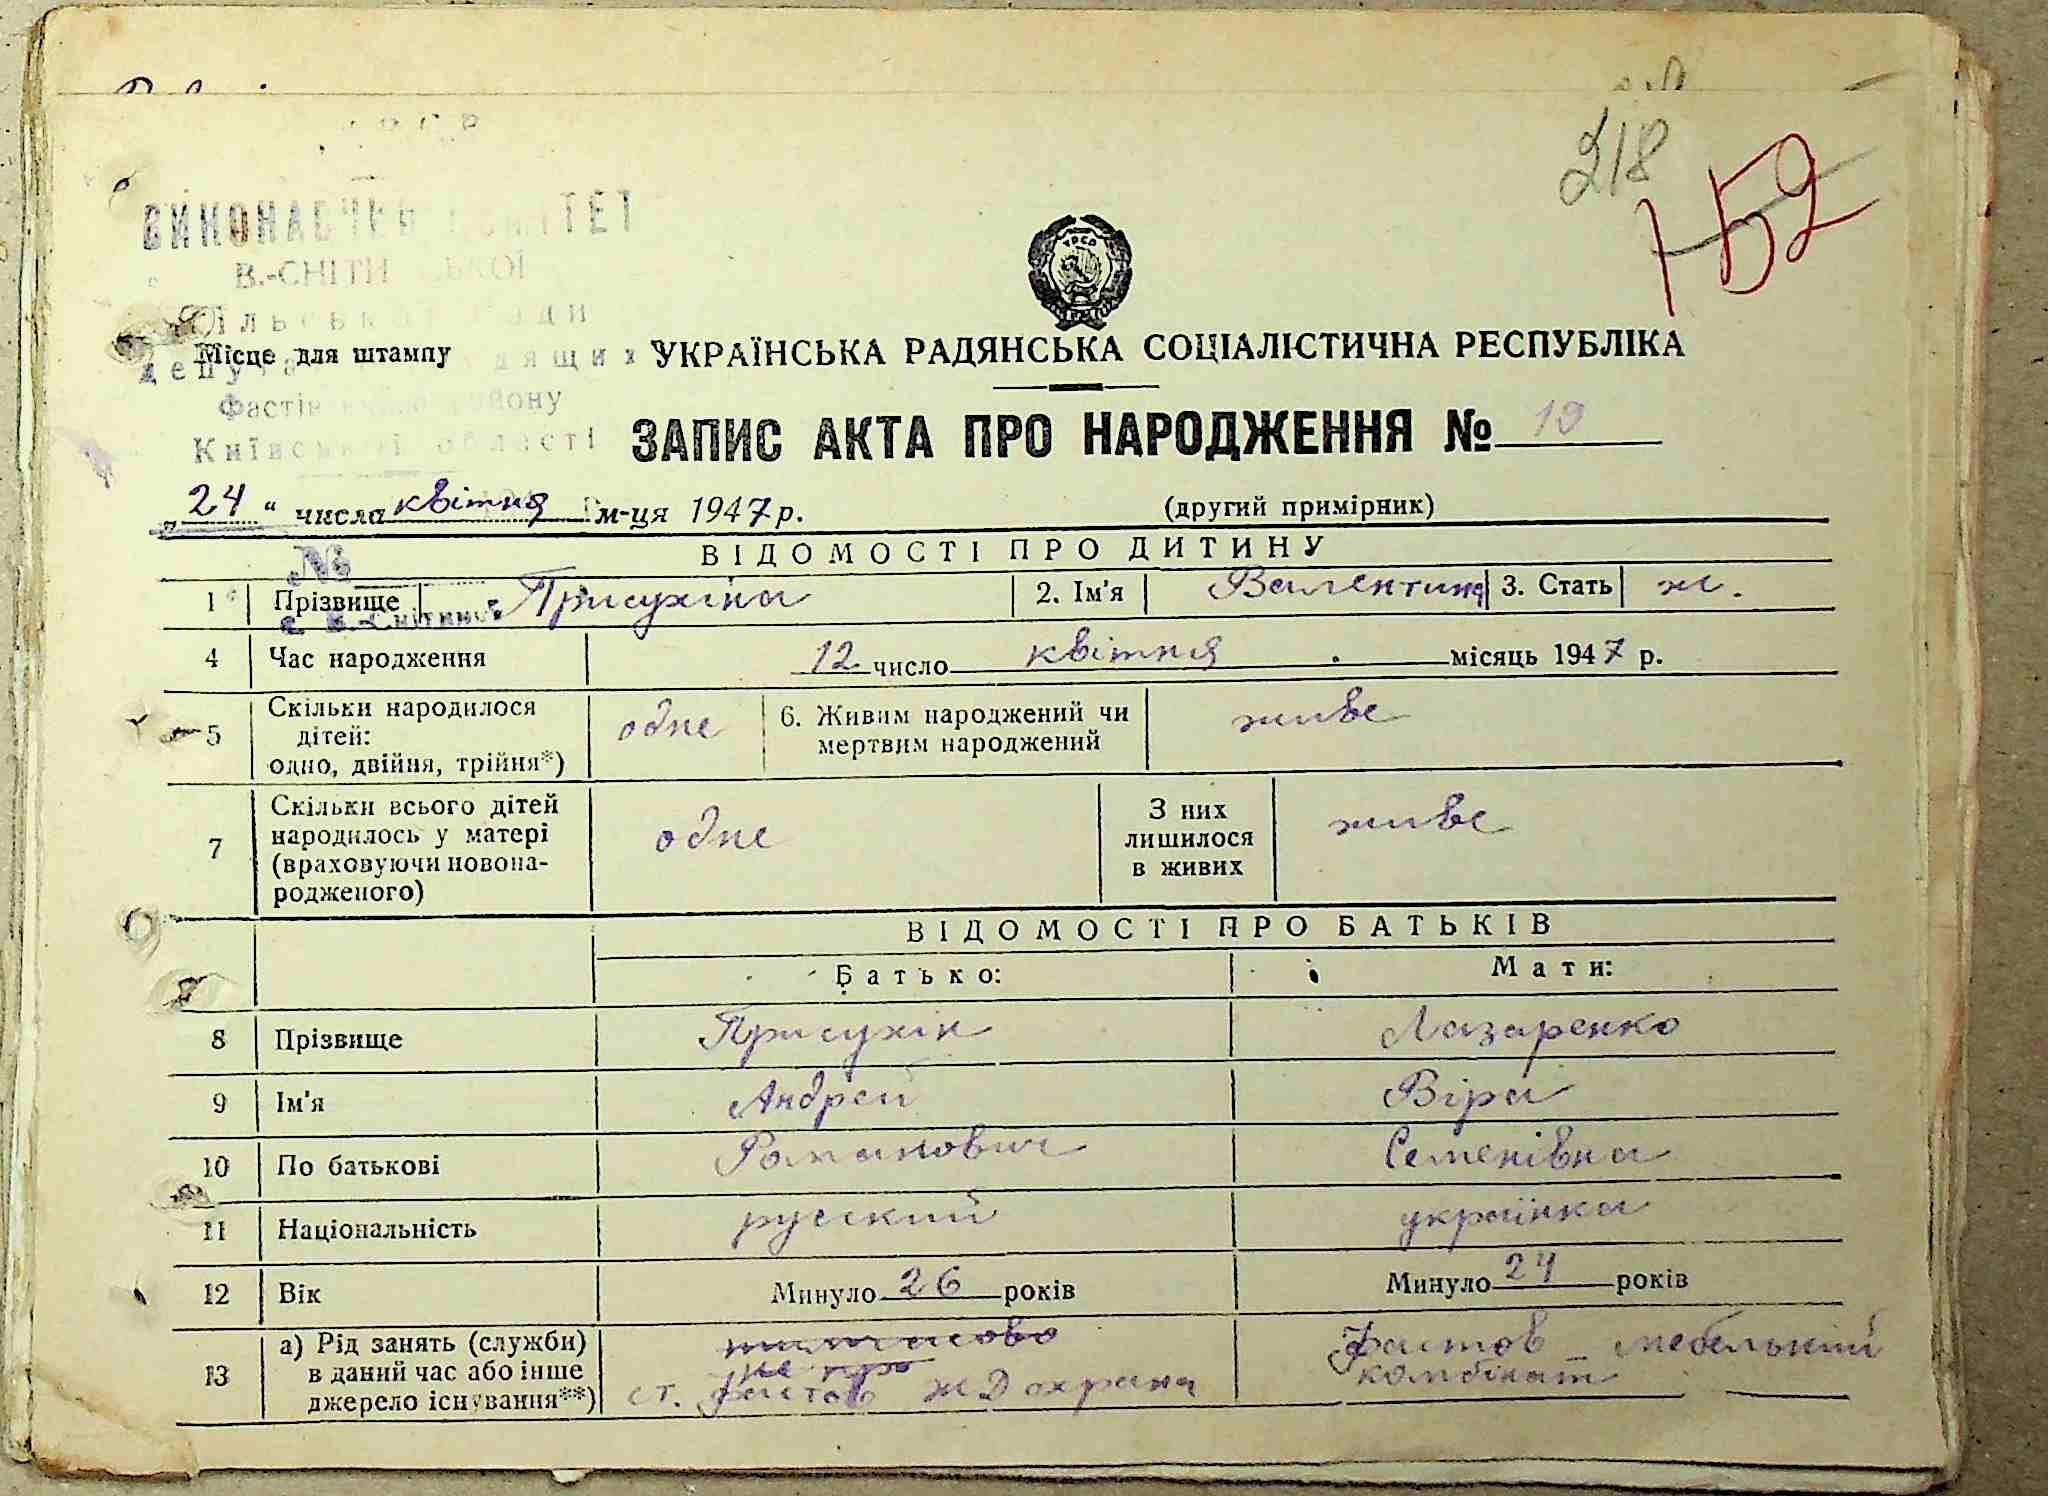 218
152
ВИКОНАВЧИЙ КОМІТЕТ
В.-СНІТИНСЬКОЇ
Сільської Ради
депутатів трудящих
Фастівського району
Київської області
УРСР
Місце для штампу
УКРАЇНСЬКА РАДЯНСЬКА СОЦІАЛІСТИЧНА РЕСПУБЛІКА
ЗАПИС АКТА ПРО НАРОДЖЕННЯ № 19
„24“ числа квітня м-ця 1947 р. (другий примірник)
№
с. В.-Снітинка
ВІДОМОСТІ ПРО ДИТИНУ
1 Прізвище Присухіна 2. Ім'я Валентина 3. Стать ж.
4 Час народження 12 число квітня місяць 1947 р.
5 Скільки народилося дітей: одно, двійня, трійня*) одне 6. Живим народжений чи мертвим народжений живе
7 Скільки всього дітей народилось у матері (враховуючи новонародженого) одне З них лишилося в живих живе
ВІДОМОСТІ ПРО БАТЬКІВ
Батько: Мати:
8 Прізвище Присухін Лазаренко
9 Ім'я Андрей Віра
10 По батькові Романович Семенівна
11 Національність русский українка
12 Вік Минуло 26 років Минуло 24 років
13 а) Рід занять (служби) в даний час або інше джерело існування**) ст. Фастов ЖД охрана Фастов мебелький комбінат